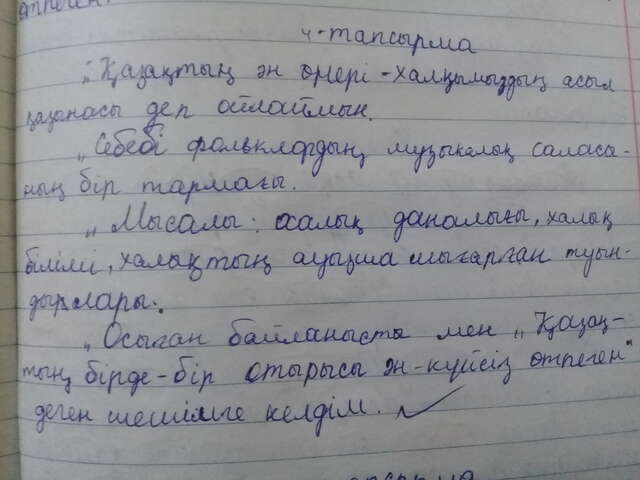 өтпеген.
4-тапсырма
„Қазақтың ән өнері-халқымыздың асыл
қазынасы деп ойлаймын.
„Себебі фольклордың, музыкалық саласы-
ның бір тармағы.
„Мысалы: халық даналығы, халық
білімі, халықтың ауызша шығарған туын-
дырлары.
„Осыған байланысты мен „Қазақ-
тың бірде-бір отырысы ән-күйсіз өтпеген"
деген шешімге келдім.